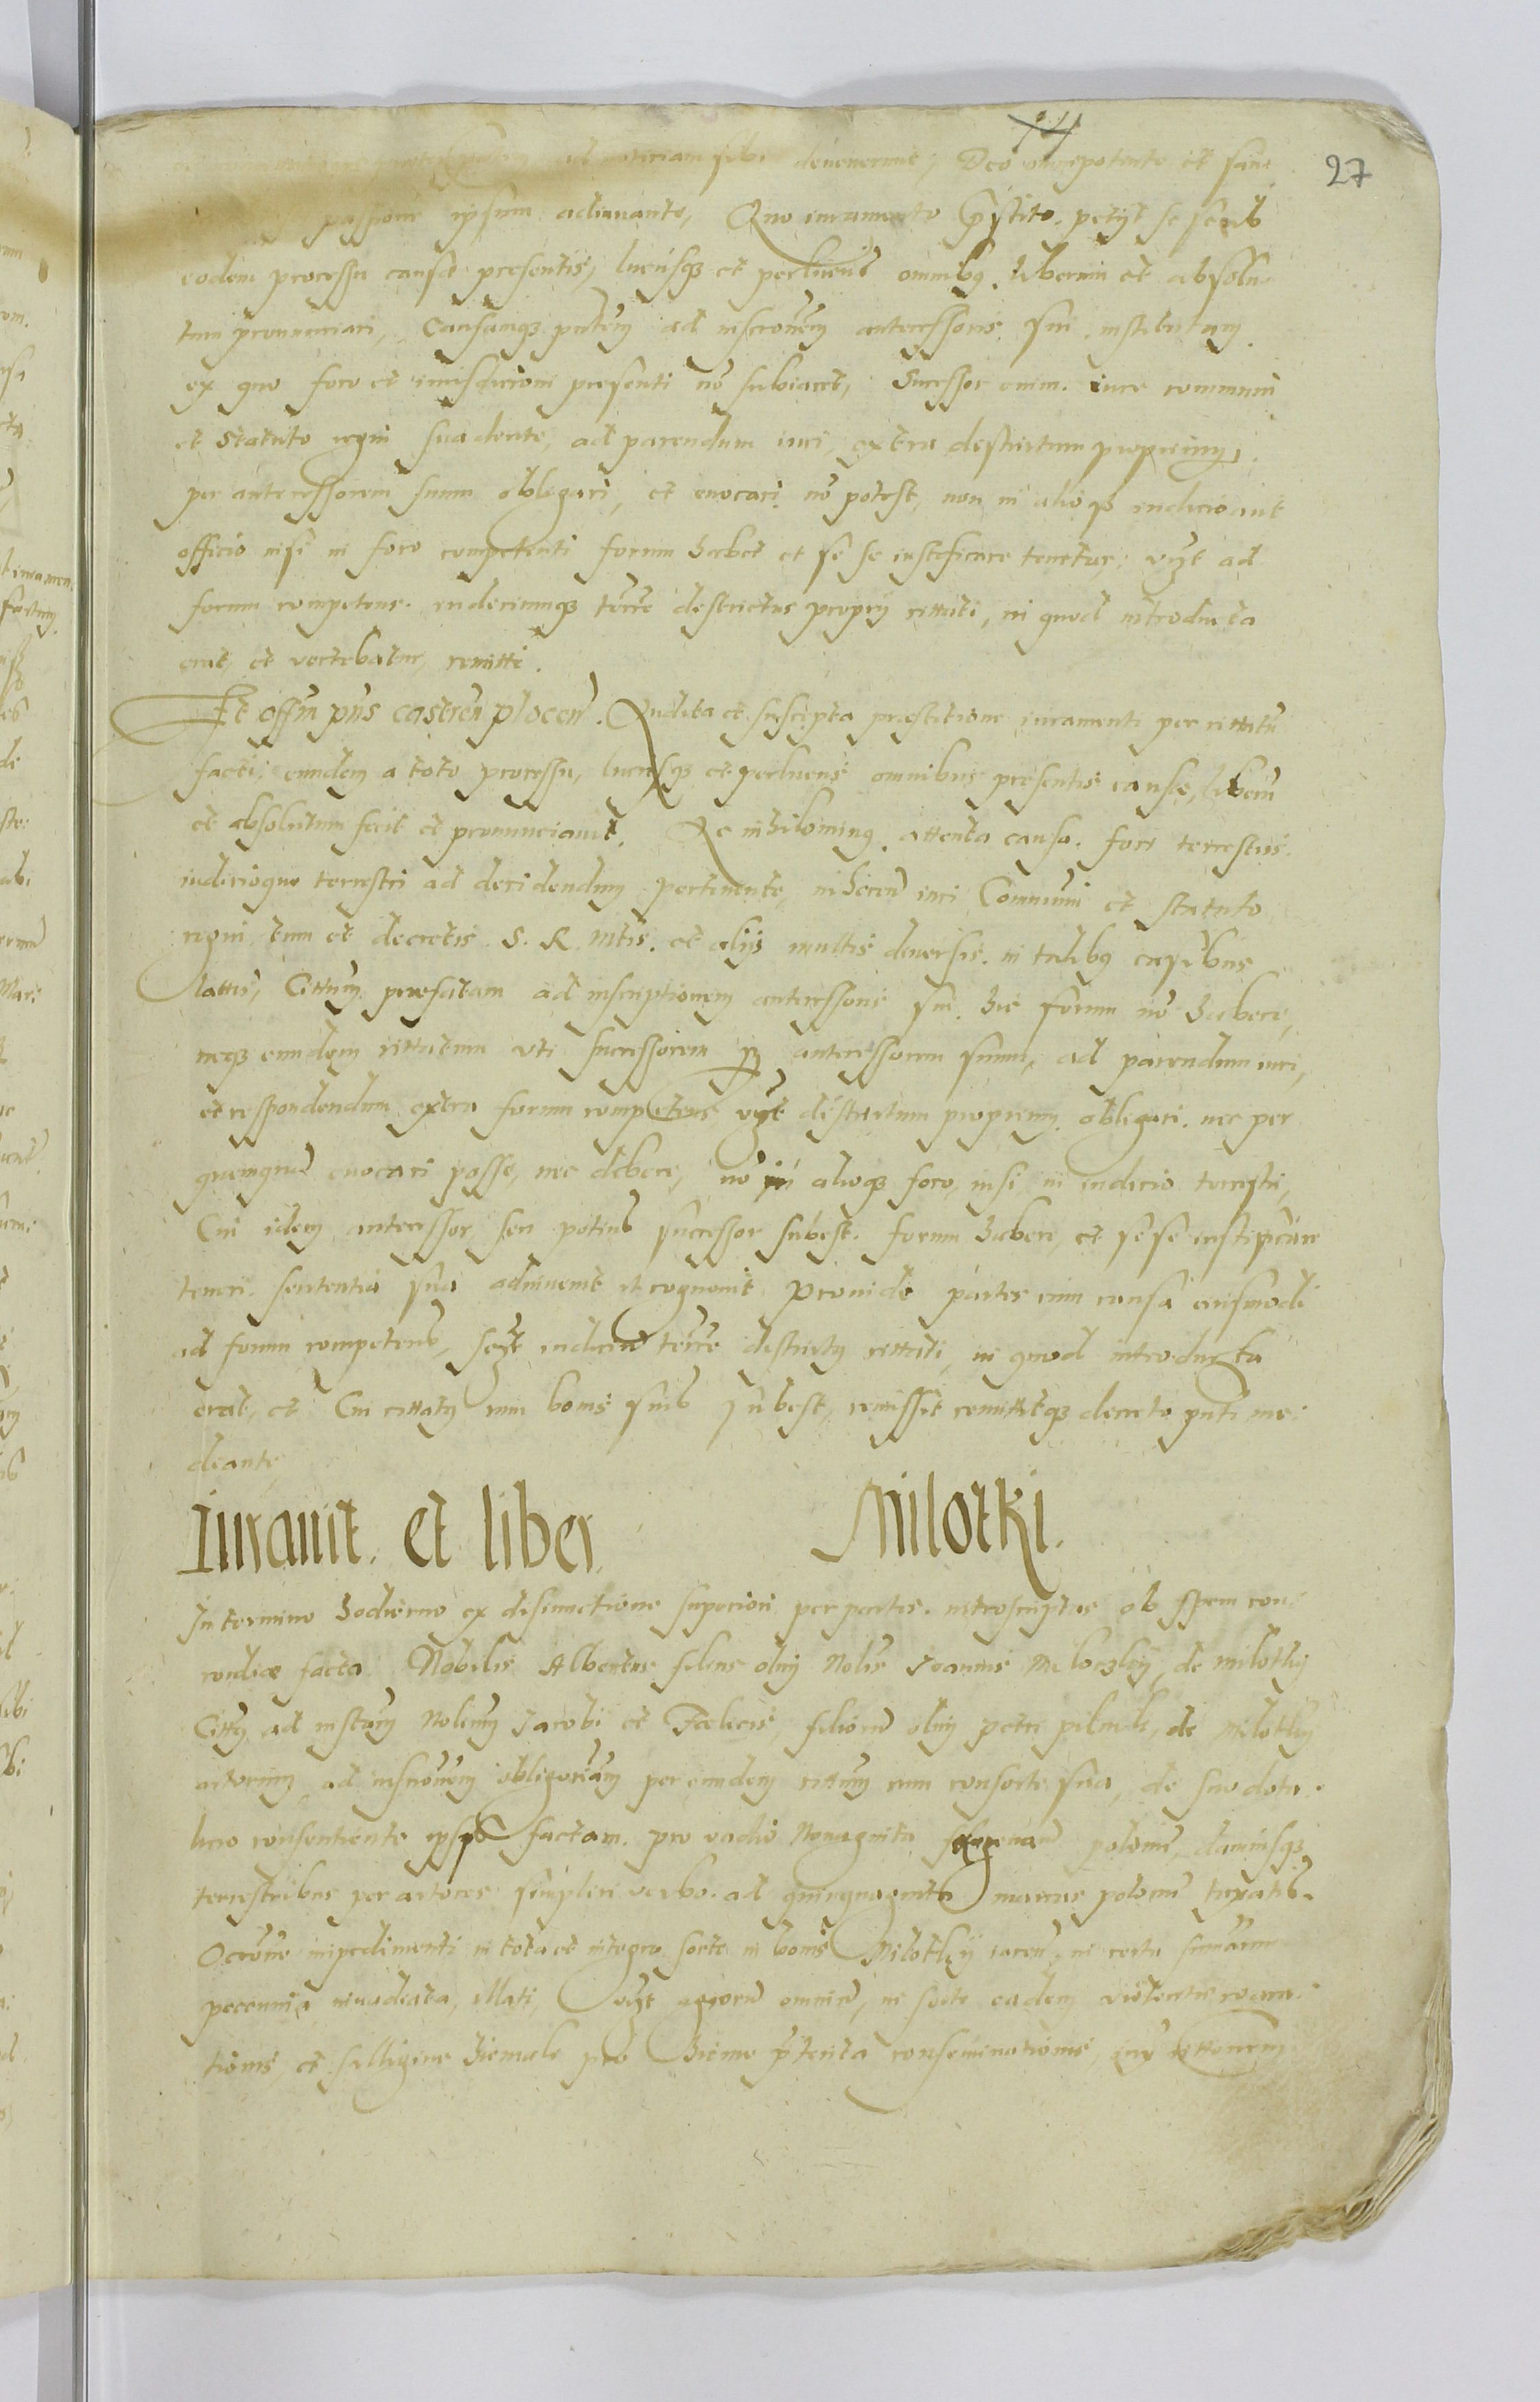 27
ad notitiam sibi devenerunt, Deo omnipotente et sanc
passione ipsum adiuvante, Quo iuramento prestito, petyt se
eodem processu cause presentis, lucrisq et perlucris omnibus, liberum et absolu
tum pronunciari, Causamq pntem ad inscronem antecessoris sui, institutam
ex quo foro et iurisdicioni presenti no subiacet, Sucessor enim iure communi
et statuto regni suadente, ad parendum iuri, extra destrictum proprium,
per antecessorem suum obligari, et evocari no potest, non in alioq iudicio aut
officio nisi in foro competenti forum habet et se se iustificare tenetur, vyt ad
forum competens iudiciumq terre destrictus propry cittati, in quod introducta
erat, et vertebatur, remitti.
Et offm pns castren plocen. Audita et suscipta prestitione iuramenti per cittatu
facti, eundem a toto processu, lucrisq et perlucris omnibus presentis cause, liberum
et absolutum fecit et pronunciavit, Ac nihilominus attenta causa fori terrestris
iudicioque terrestri ad decidendum pertinente, inherend iuri Communi et statuto
regni tum et decretis S. R. Mtis. et alys multis diversis in talibus casibus
lattis, Cittum prefatam ad inscriptionem antecessoris sui, hic forum no habere,
neq eundem cittatum uti successorem per antecessorem suum, ad parendum iuri,
et respondendum extra forum competens vyt destrictum proprium, obligari, nec per
quemqua evocari posse, nec debere, no in alioq foro, nisi in iudicio terrestri,
Cui idem antecessor seu potius successor subest, forum habere, et sese iustificare
teneri sententia sua adinvenit et cognovit Proinde partes cum causa eiusmodi
ad forum competens, scyt iudiciu terre destrictus cittati, in quod introducta
erat, et Cui cittatus cum bonis suis subest, remissit remittitq decreto pnti me
diante
Iuravit et liber Milotki.
In termino hodierno ex disiunctione superiori per partes introscriptas ob spem con
cordiae facta Nobilis Albertus filius olim Nobis Joannis Miloczky de Milotky
Citts ad instam Nobilium Jacobi et Foelicis, filiorum olim petri pilnik, de Milotky
actorum ad inscronem obligatoriam per eundem cittum cum consorte sua, de suo dota
licio consentiente ipsis factam pro vadio Nonaginta sexagenaru polonic, damnisq
terrestribus per actores simplici verbo ad quinquaginta marcas polonic taxatis
Occone impedimenti in tota et integra sorte in bonis Milotky iacen, in certa summa
peccunia invadiata, illati, vyt agrorum omnium, in sorte eadem violentis coarca
tionis, et silligine hiemali pro hieme preterita conseminationis, iux cittationem